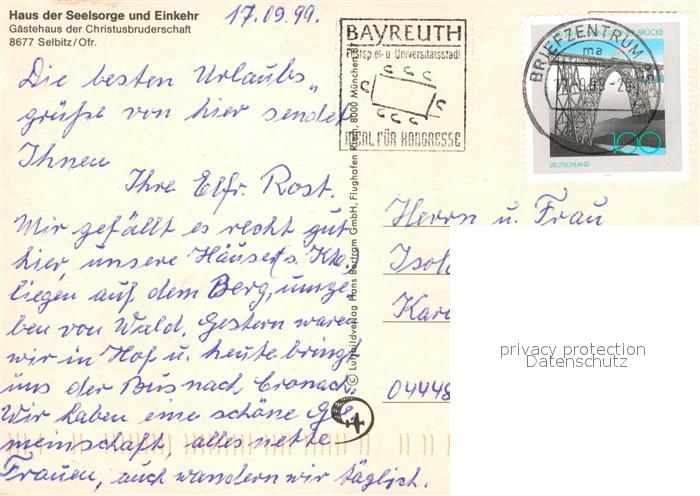 Haus der Seelsorge und Einkehr
Gästehaus der Christusbruderschaft
8677 Selbitz/Ofr.
17.09.99.
Die besten Urlaubs„
grüße von hier sendet
Ihnen
Ihre Elfr. Rost.
Mir gefällt es recht gut
hier, unsere Häuser (s. Kte.)
liegen auf dem Berg, umge„
ben von Wald. Gestern waren
wir in Hof u. heute bringt
uns der Bus nach Cronach.
Wir haben eine schöne Ge„
meinschaft, alles nette
Frauen, auch wandern wir täglich.
© Luftbildverlag Hans Bertram GmbH, Flughafen Riem, 8000 München 87
BAYREUTH
Festspiel- u Universitätsstadt
IDEAL FÜR KONGRESSE
BRIEFZENTRUM
ma
BRÜCKE
100
DEUTSCHLAND
Herrn u. Frau
04448
privacy protection
Datenschutz